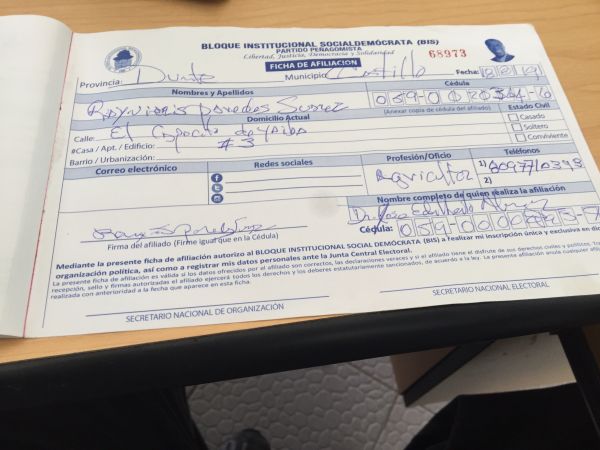 BLOQUE INSTITUCIONAL SOCIALDEMÓCRATA (BIS)
PARTIDO PEÑAGOMISTA
Libertad, Justicia, Democracia y Solidaridad
68973
FICHA DE AFILIACIÓN
Provincia: Duarte Municipio: Castillo Fecha:
Nombres y Apellidos Cédula
Paredes Suarez 059-0
(Anexar copia de cédula del afiliado)
Domicilio Actual Estado Civil
Calle: El
Casado
#Casa / Apt. / Edificio: # 3 Soltero
Barrio / Urbanización: Conviviente
Correo electrónico Redes sociales Profesión/Oficio Teléfonos
Agricultor 1) 8097710393
2)
Nombre completo de quien realiza la afiliación
Firma del afiliado (Firme igual que en la Cédula) Cédula: 059-0000
Mediante la presente ficha de afiliación autorizo al BLOQUE INSTITUCIONAL SOCIAL DEMÓCRATA (BIS) a realizar mi inscripción única y exclusiva en dic
organización política, así como a registrar mis datos personales ante la Junta Central Electoral.
La presente ficha de afiliación es válida si los datos ofrecidos por el afiliado son correctos, las declaraciones veraces y si el afiliado tiene el disfrute de sus derechos civiles y políticos. Tra
recepción, sello y firmas autorizadas el afiliado ejercerá todos los derechos y los deberes estatutariamente sancionados, de acuerdo a la ley. La presente afiliación anula cualquier afili
realizada con anterioridad a la fecha que aparece en esta ficha.
SECRETARIO NACIONAL DE ORGANIZACIÓN SECRETARIO NACIONAL ELECTORAL